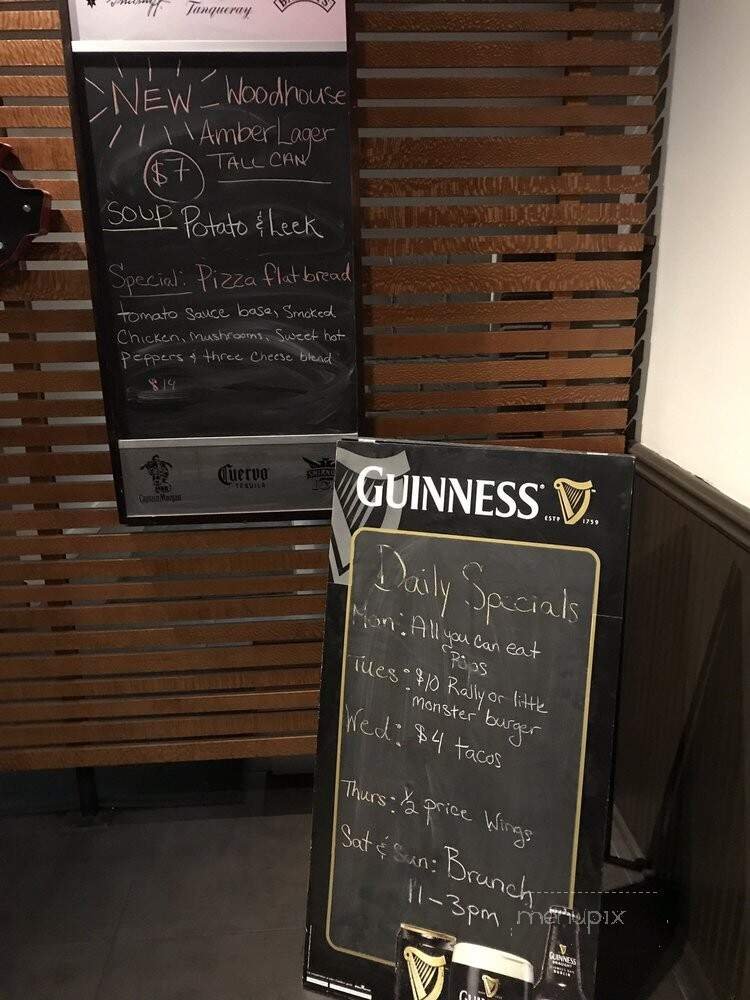 Tanqueray
NEW Woodhouse
Amber Lager
$7 TALL CAN
SOUP Potato & Leek
Special: Pizza flatbread
tomato sauce base, Smoked
Chicken, mushrooms, Sweet hot
peppers & three cheese blend
$14
Captain Morgan
Cuervo
TEQUILA
GUINNESS
ESTD 1759
Daily Specials
Mon: All you can eat
Ribs
Tues: $10 Rally or little
monster burger
Wed: $4 tacos
Thurs: ½ price Wings
Sat & Sun: Brunch
11-3pm
menupix
GUINNESS
DRAUGHT
DUBLIN